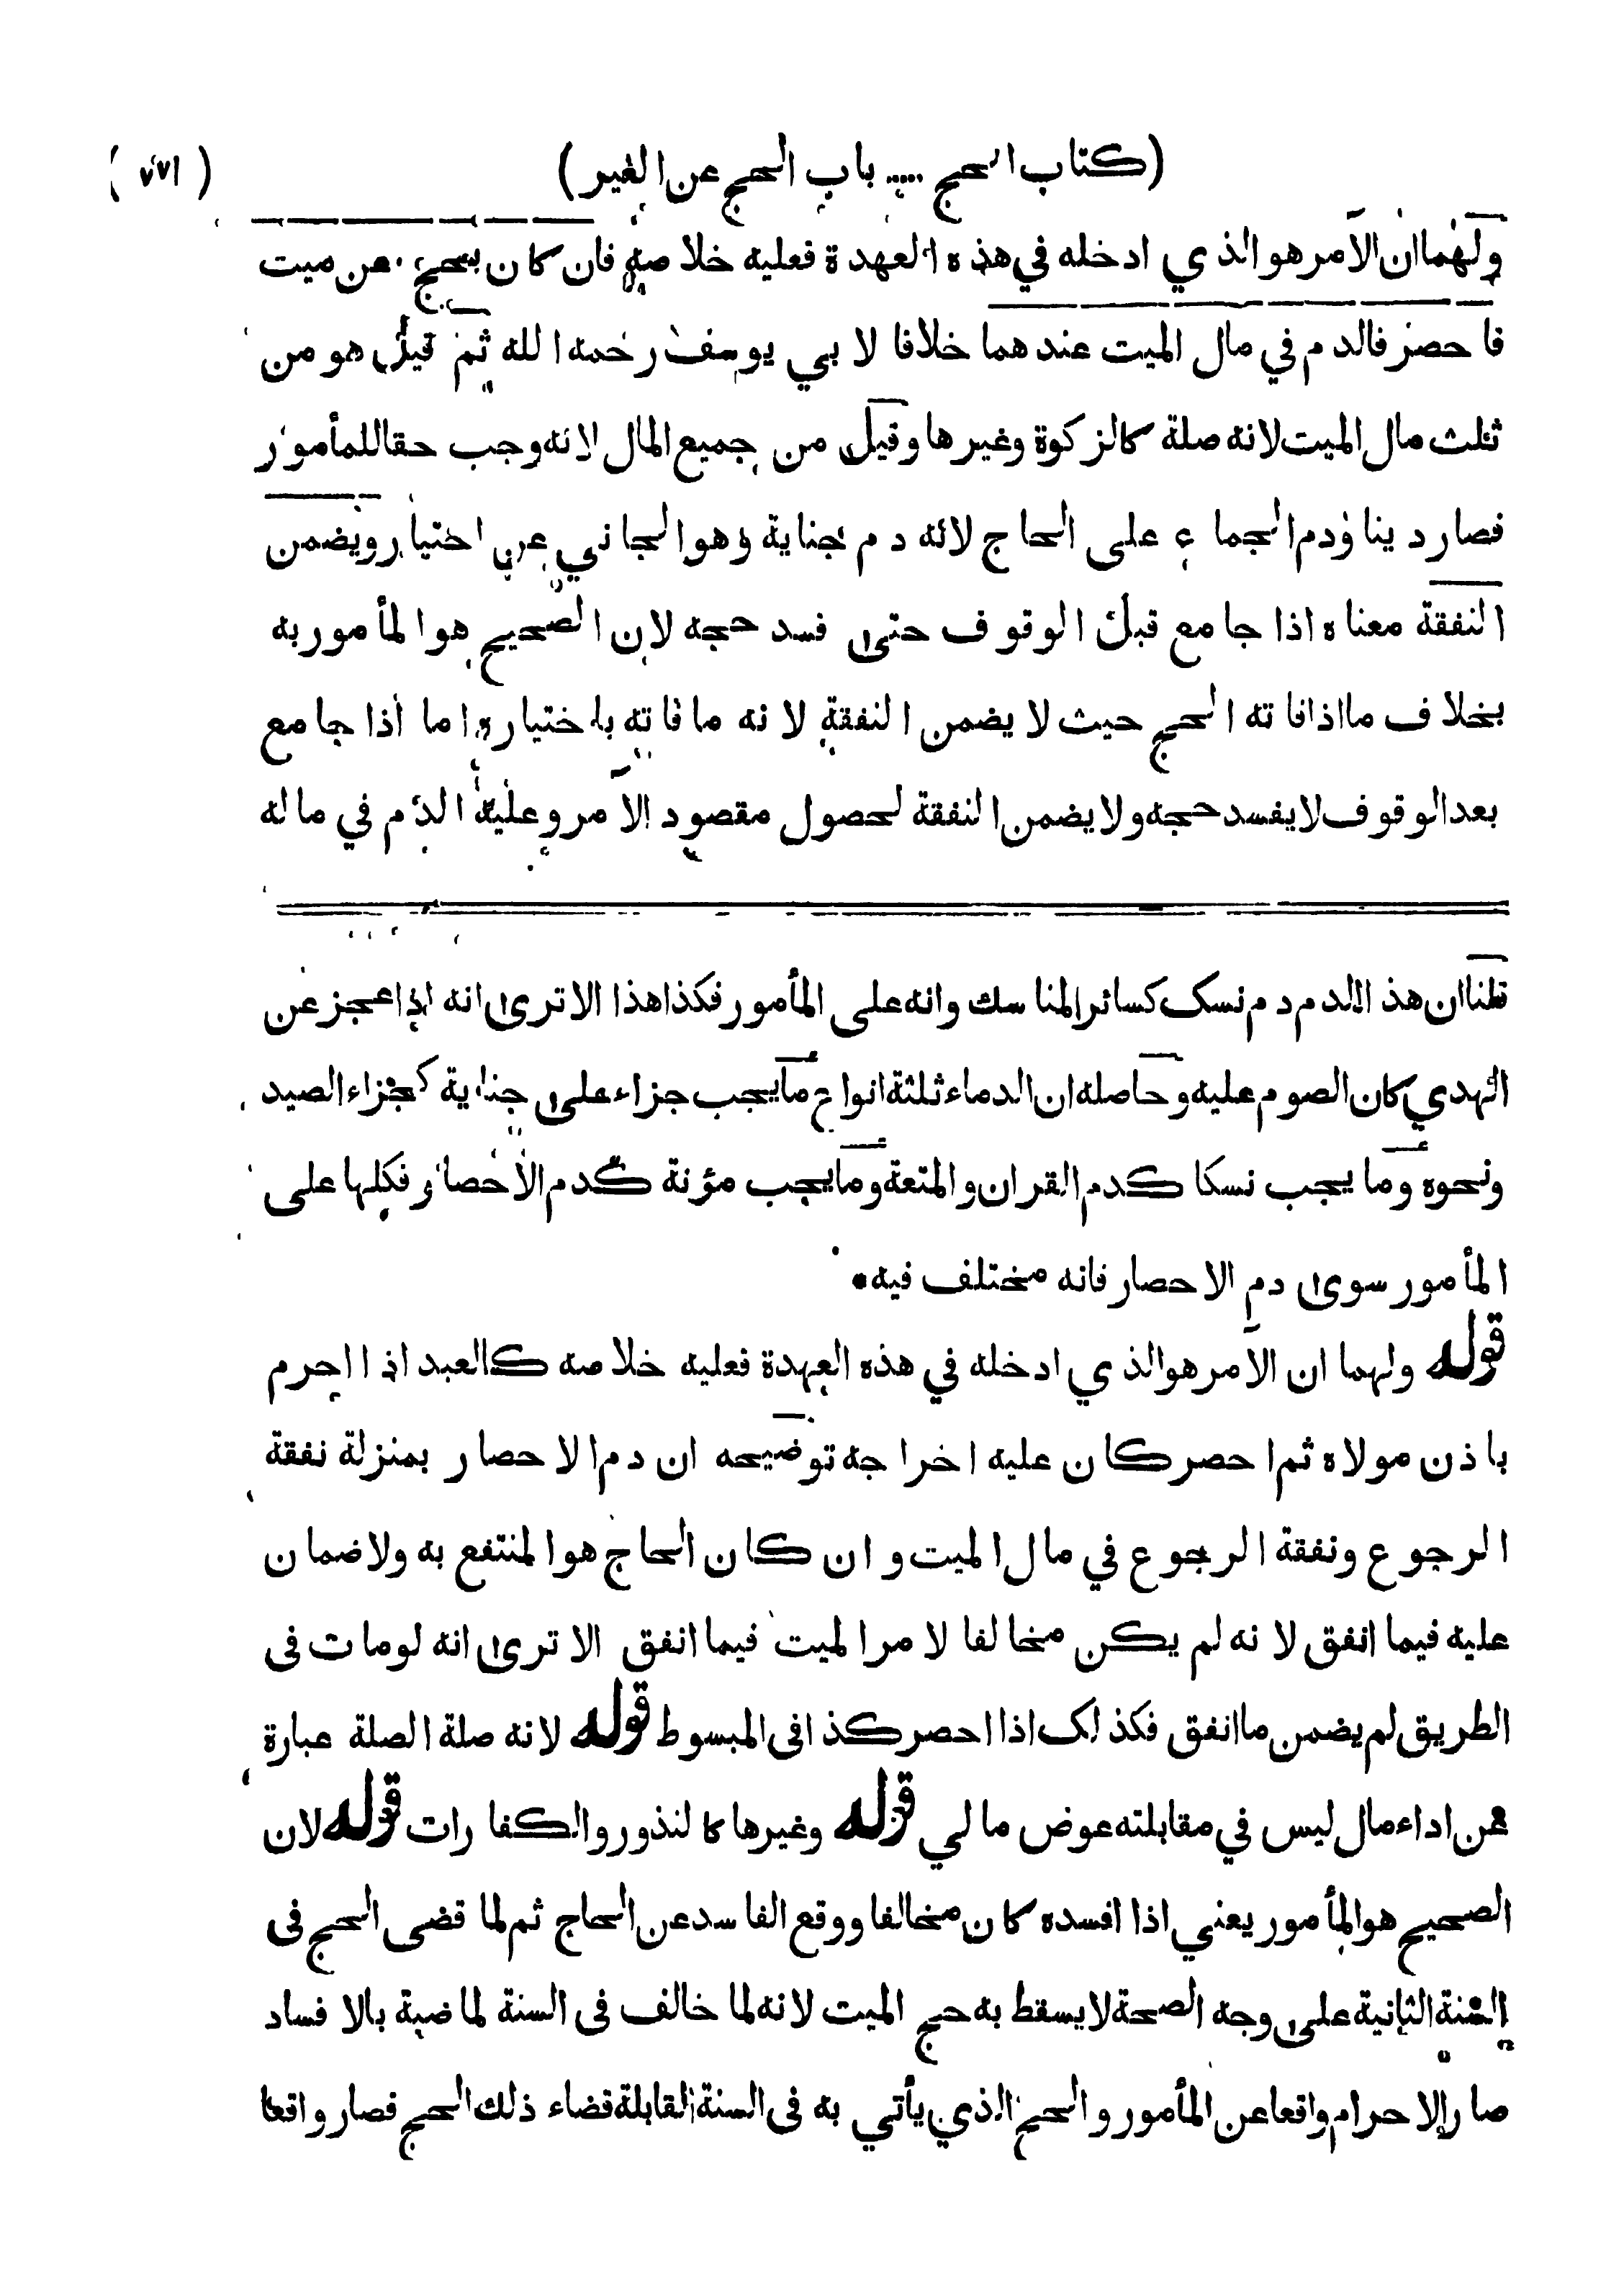 (كتاب الحج ..... باب الحج عن الغير)
ولهما ان الآمر هو الذي ادخله في هذه العهدة فعليه خلاصه فان كان يحج عن ميت
فاحصر فالدم في مال الميت عندهما خلافا لابي يوسف رحمه الله ثم قيل هو من
ثلث مال الميت لانه صلة كالزكوة وغيرها وقيل من جميع المال لانه وجب حقا للمأمور
فصار دينا ودم الجماع على الحاج لانه دم جناية وهو الجاني عن اختيار ويضمن
النفقة معناه اذا جامع قبل الوقوف حتى فسد حجه لان الصحيح هو المأمور به
بخلاف ما اذا فاته الحج حيث لا يضمن النفقة لانه ما فاته باختياره اما اذا جامع
بعد الوقوف لا يفسد حجه ولا يضمن النفقة لحصول مقصود الآمر وعليه الدم في ماله
قلنا ان هذا الدم دم نسك كسائر المناسك وانه على المأمور فكذا هذا الا ترى انه اذا عجز عن
الهدي كان الصوم عليه وحاصله ان الدماء ثلثة انواع ما يجب جزاء على جناية كجزاء الصيد
ونحوه وما يجب نسكا كدم القران والمتعة وما يجب مؤنة كدم الاحصار فكلها على
المأمور سوى دم الاحصار فانه مختلف فيه •
قوله ولهما ان الآمر هو الذي ادخله في هذه العهدة فعليه خلاصه كالعبد اذا احرم
باذن مولاه ثم احصر كان عليه اخراجه توضيحه ان دم الاحصار بمنزلة نفقة
الرجوع ونفقة الرجوع في مال الميت وان كان الحاج هو المنتفع به ولا ضمان
عليه فيما انفق لانه لم يكن مخالفا لامر الميت فيما انفق الا ترى انه لو مات فى
الطريق لم يضمن ما انفق فكذلك اذا احصر كذا فى المبسوط قوله لانه صلة الصلة عبارة
عن اداء مال ليس في مقابلته عوض مالي قوله وغيرها كالنذور والكفارات قوله لان
الصحيح هو المأمور يعني اذا افسده كان مخالفا ووقع الفاسد عن الحاج ثم لما قضى الحج فى
السنة الثانية على وجه الصحة لا يسقط به حج الميت لانه لما خالف فى السنة لماضية بالافساد
صار الاحرام واقعا عن المأمور والحج الذي يأتي به فى السنة القابلة قضاء ذلك الحج فصار واقعا